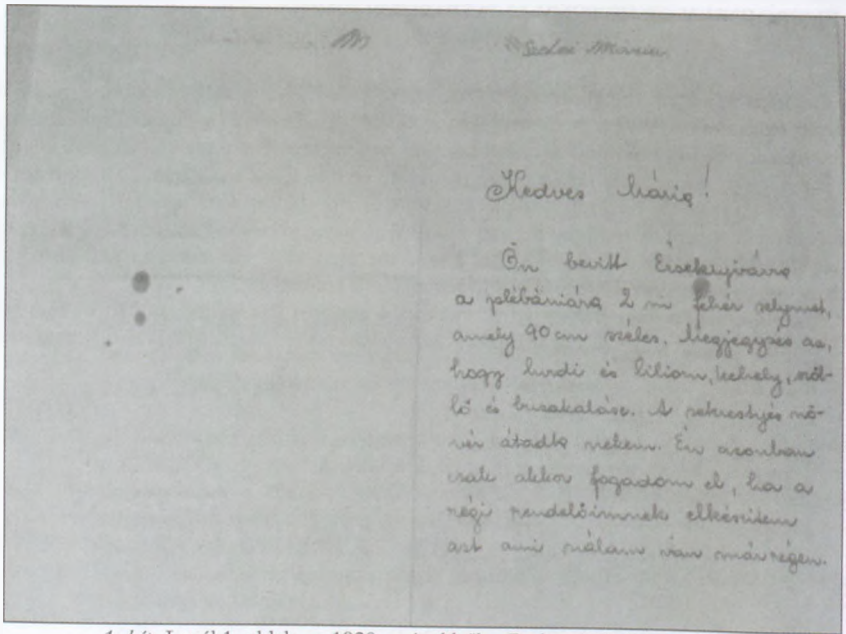 Kedves Mária!
Ön bevitt Érsekujvárra
a plébániára 2 m fehér selymet,
amely 90 cm széles. Megjegyzés az,
hogy lurdi és liliom, kehely, szől-
lő és buzakalász. A sekrestyés nő-
vér átadta nekem. Én azonban
csak akkor fogadom el, ha a
régi rendelőimnek elkészitem
azt ami nálam van már régen.